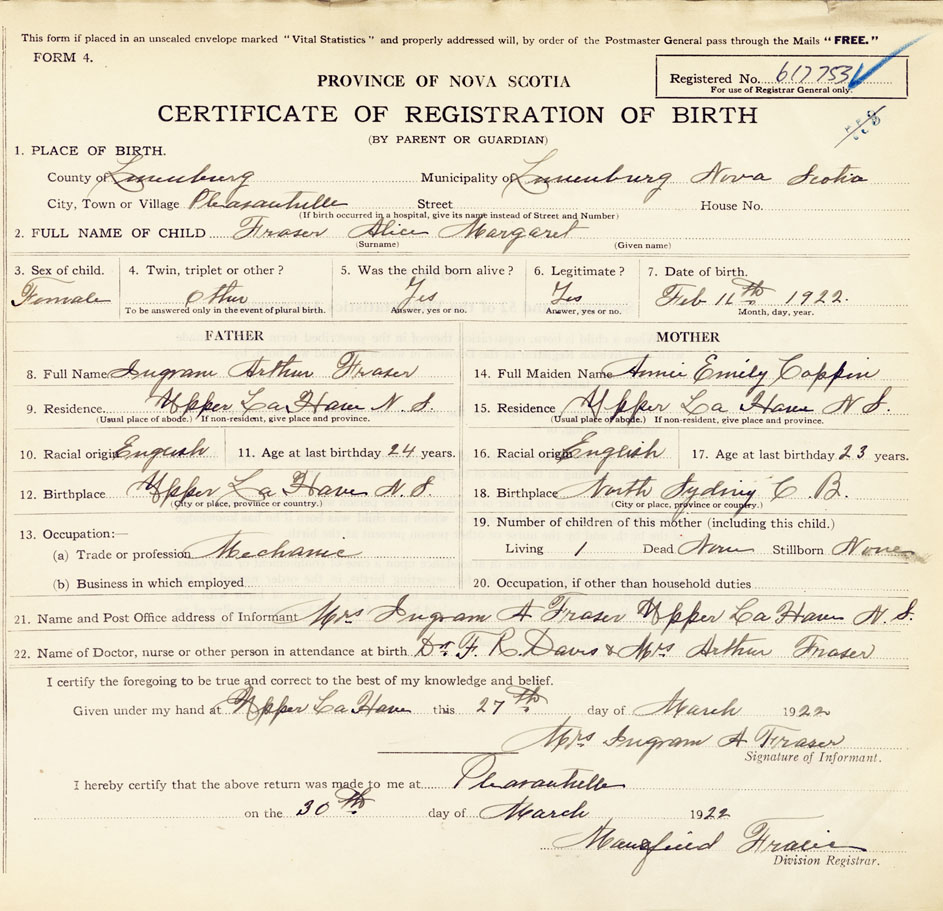 This form if placed in an unsealed envelope marked "Vital Statistics" and properly addressed will, by order of the Postmaster General pass through the Mails "FREE."
FORM 4.
Registered No. 617753
For use of Registrar General only.
PROVINCE OF NOVA SCOTIA
CERTIFICATE OF REGISTRATION OF BIRTH
(BY PARENT OR GUARDIAN)
1. PLACE OF BIRTH.
County of Lunenburg Municipality of Lunenburg Nova Scotia
City, Town or Village Pleasantville Street House No.
(If birth occurred in a hospital, give its name instead of Street and Number)
2. FULL NAME OF CHILD Fraser Alice Margaret
(Surname) (Given name)
3. Sex of child. 4. Twin, triplet or other? 5. Was the child born alive? 6. Legitimate? 7. Date of birth.
Female Other Yes Yes Feb 11th 1922.
To be answered only in the event of plural birth. Answer, yes or no. Answer, yes or no. Month, day, year.
FATHER MOTHER
8. Full Name Ingram Arthur Fraser 14. Full Maiden Name Annie Emily Coppin
9. Residence Upper La Have N. S. 15. Residence Upper La Have N S.
(Usual place of abode.) If non-resident, give place and province. (Usual place of abode.) If non-resident, give place and province.
10. Racial origin English 11. Age at last birthday 24 years. 16. Racial origin English 17. Age at last birthday 23 years.
12. Birthplace Upper La Have N. S. 18. Birthplace North Sydney C. B.
(City or place, province or country.) (City or place, province or country.)
13. Occupation:— 19. Number of children of this mother (including this child.)
(a) Trade or profession Mechanic Living 1 Dead None Stillborn None
(b) Business in which employed 20. Occupation, if other than household duties
21. Name and Post Office address of Informant Mrs Ingram A Fraser Upper La Have N. S.
22. Name of Doctor, nurse or other person in attendance at birth Dr. F. R. Davis & Mrs Arthur Fraser
I certify the foregoing to be true and correct to the best of my knowledge and belief.
Given under my hand at Upper La Have this 27th day of March 1922
Mrs Ingram A Fraser
Signature of Informant.
I hereby certify that the above return was made to me at Pleasantville
on the 30th day of March 1922
Division Registrar.